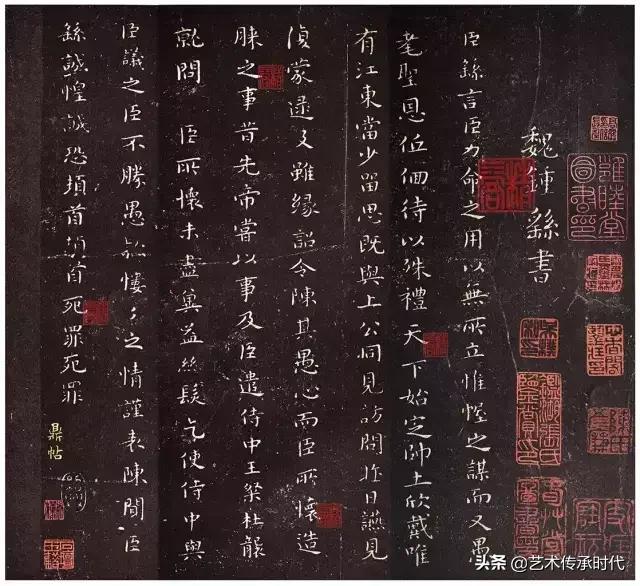 魏鍾繇書
臣繇言臣力命之用以無所立惟幄之謀而又愚
耄聖恩低佪待以殊禮 天下始定帥土欣戴唯
有江東當少留思既與上公同見訪問昨日讌見
復蒙逮及雖緣詔令陳其愚心而臣所懷造
膝之事昔先帝嘗以事及臣遣侍中王粲杜襲
就問 臣所懷未盡冀益絲髮乞使侍中與
臣議之臣不勝愚款慺々之情謹表陳聞臣
繇誠惶誠恐頓首頓首死罪死罪
鼎帖
头条 @艺术传承时代